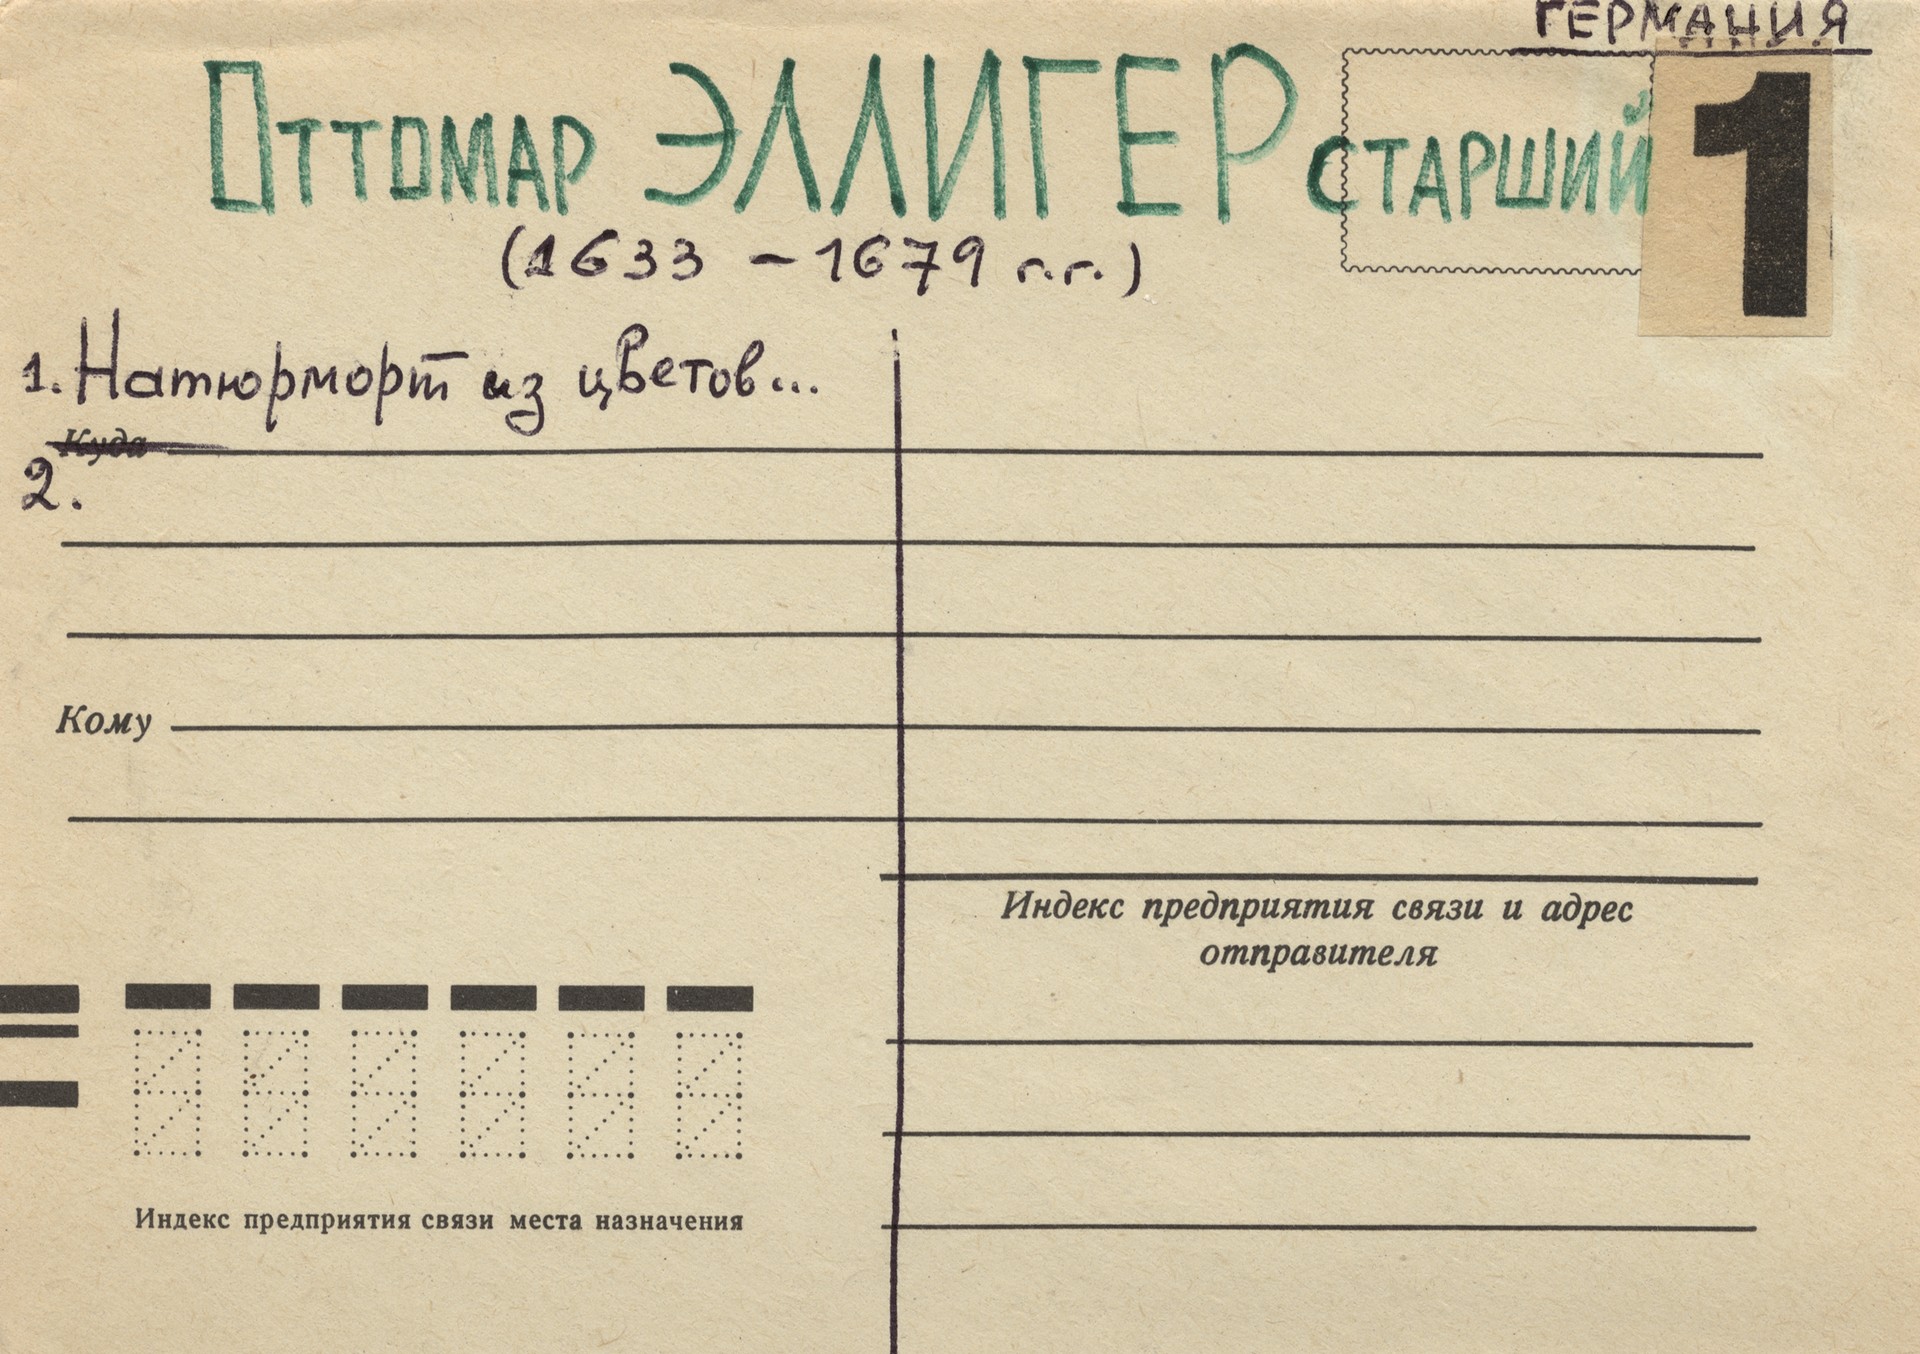 ГЕРМАНИЯ
Оттомар ЭЛЛИГЕР СТАРШИЙ
1
(1633 – 1679 г.г.)
1. Натюрморт из цветов...
Куда
2.
Кому
Индекс предприятия связи и адрес
отправителя
Индекс предприятия связи места назначения